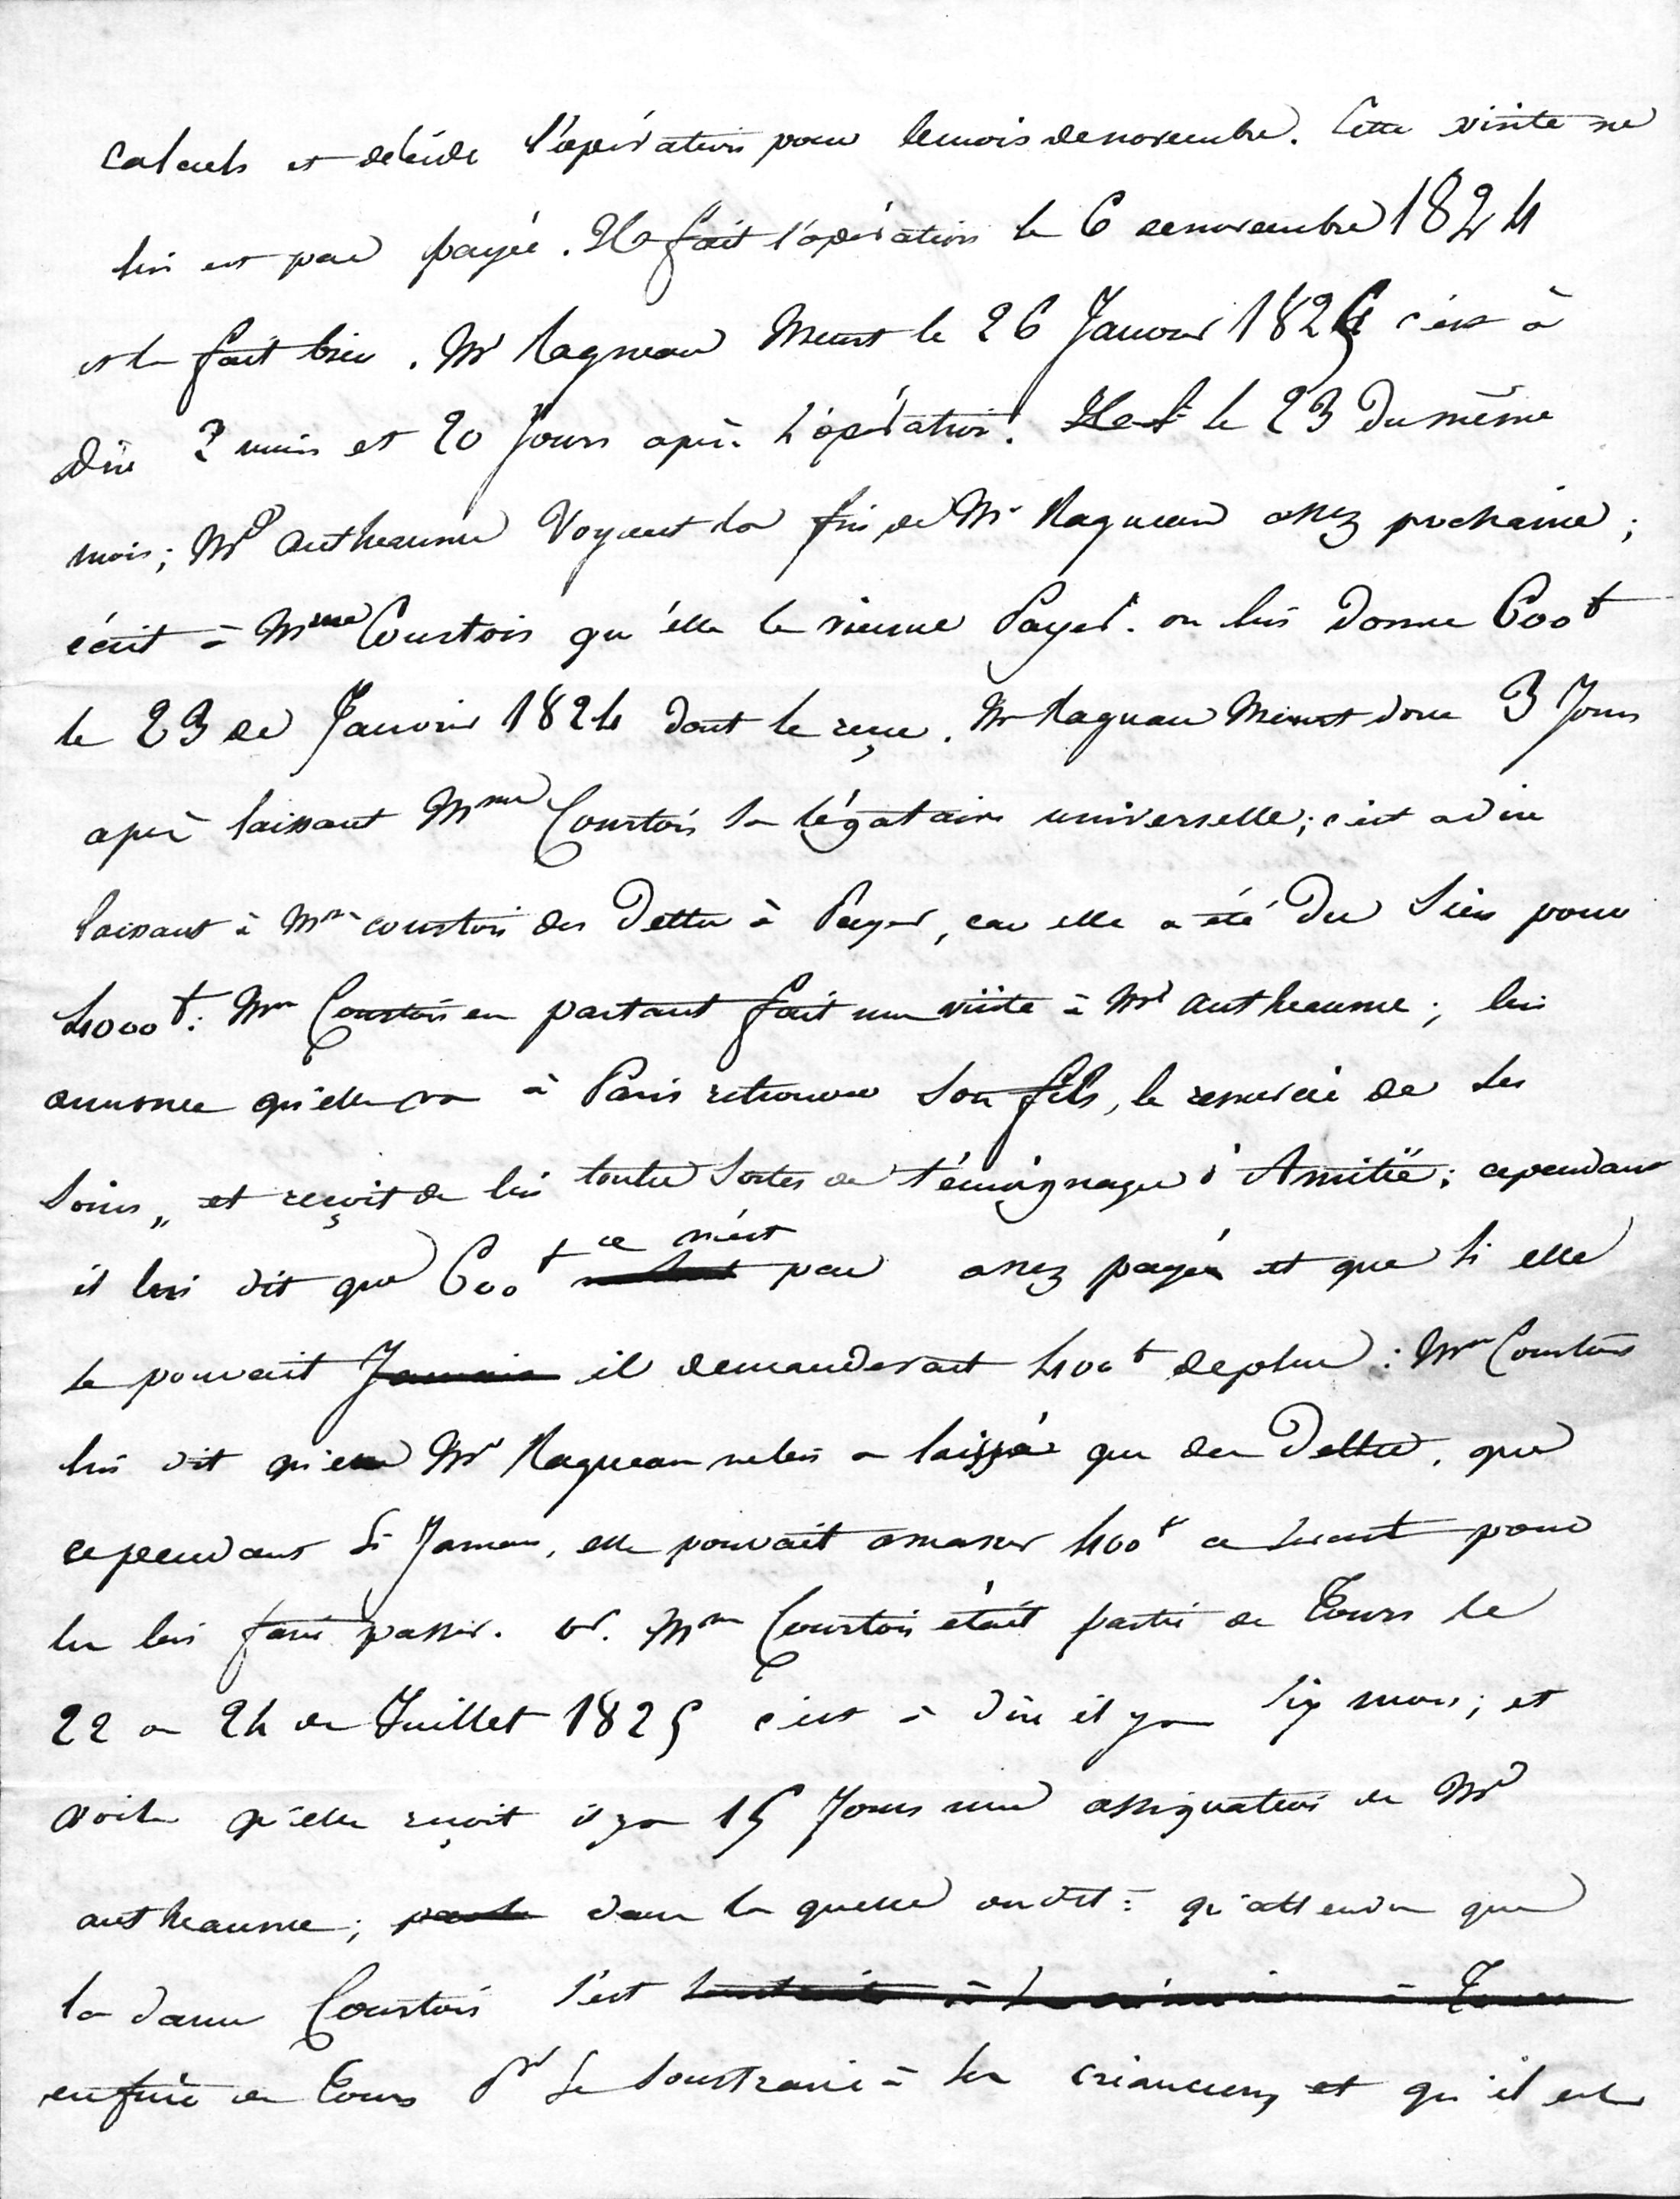 calculs et décide l'opération pour le mois de novembre. Cette visite ne
lui est pas payée. Il fait l'opération le 6 de novembre 1824
et la fait bien. Mr Ragneau Meurt le 26 Janvier 1825 c'est à
dire 2 mois et 20 Jours après l'opération. le 23 du même
mois; Mr Antheaume Voyant la fin de Mr Ragneau assez prochaine;
écrit à Mme Courtois qu'elle le vienne Payer. on lui donne 600 f
le 23 de Janvier 1824 dont le reçu. Mr Ragneau Meurt donc 3 Jours
après laissant Mme Courtois sa légataire universelle; c'est a dire
laissant à Mme Courtois des Dettes à Payer, car elle a été du Sien pour
4000 f: Mme Courtois en partant fait une visite à Mr Antheaume; lui
annonce qu'elle va à Paris retrouver son fils, le remercie de ses
soins,, et reçoit de lui toutes sortes de témoignages d'Amitié: cependant
il lui dit que 600 f ce n'est pas assez payé et que si elle
le pouvait Jamais il demanderait 400 f de plus: Mme Courtois
lui dit que Mr Ragneau ne lui a laissé que des Dettes, que
cependant si Jamais, elle pouvait amasser 400 f ce serait pour
les lui faire passer. or. Mme Courtois était partie de Tours le
22 ou 24 de Juillet 1825 c'est à dire il y a six mois; et
voila qu'elle reçoit il y a 15 Jours une assignation de Mr
antheaume; dans la quelle on dit: qu'attendu que
la dame Courtois s'est
enfuie de Tours pr se soustraire à ses créanciers et qu'il est